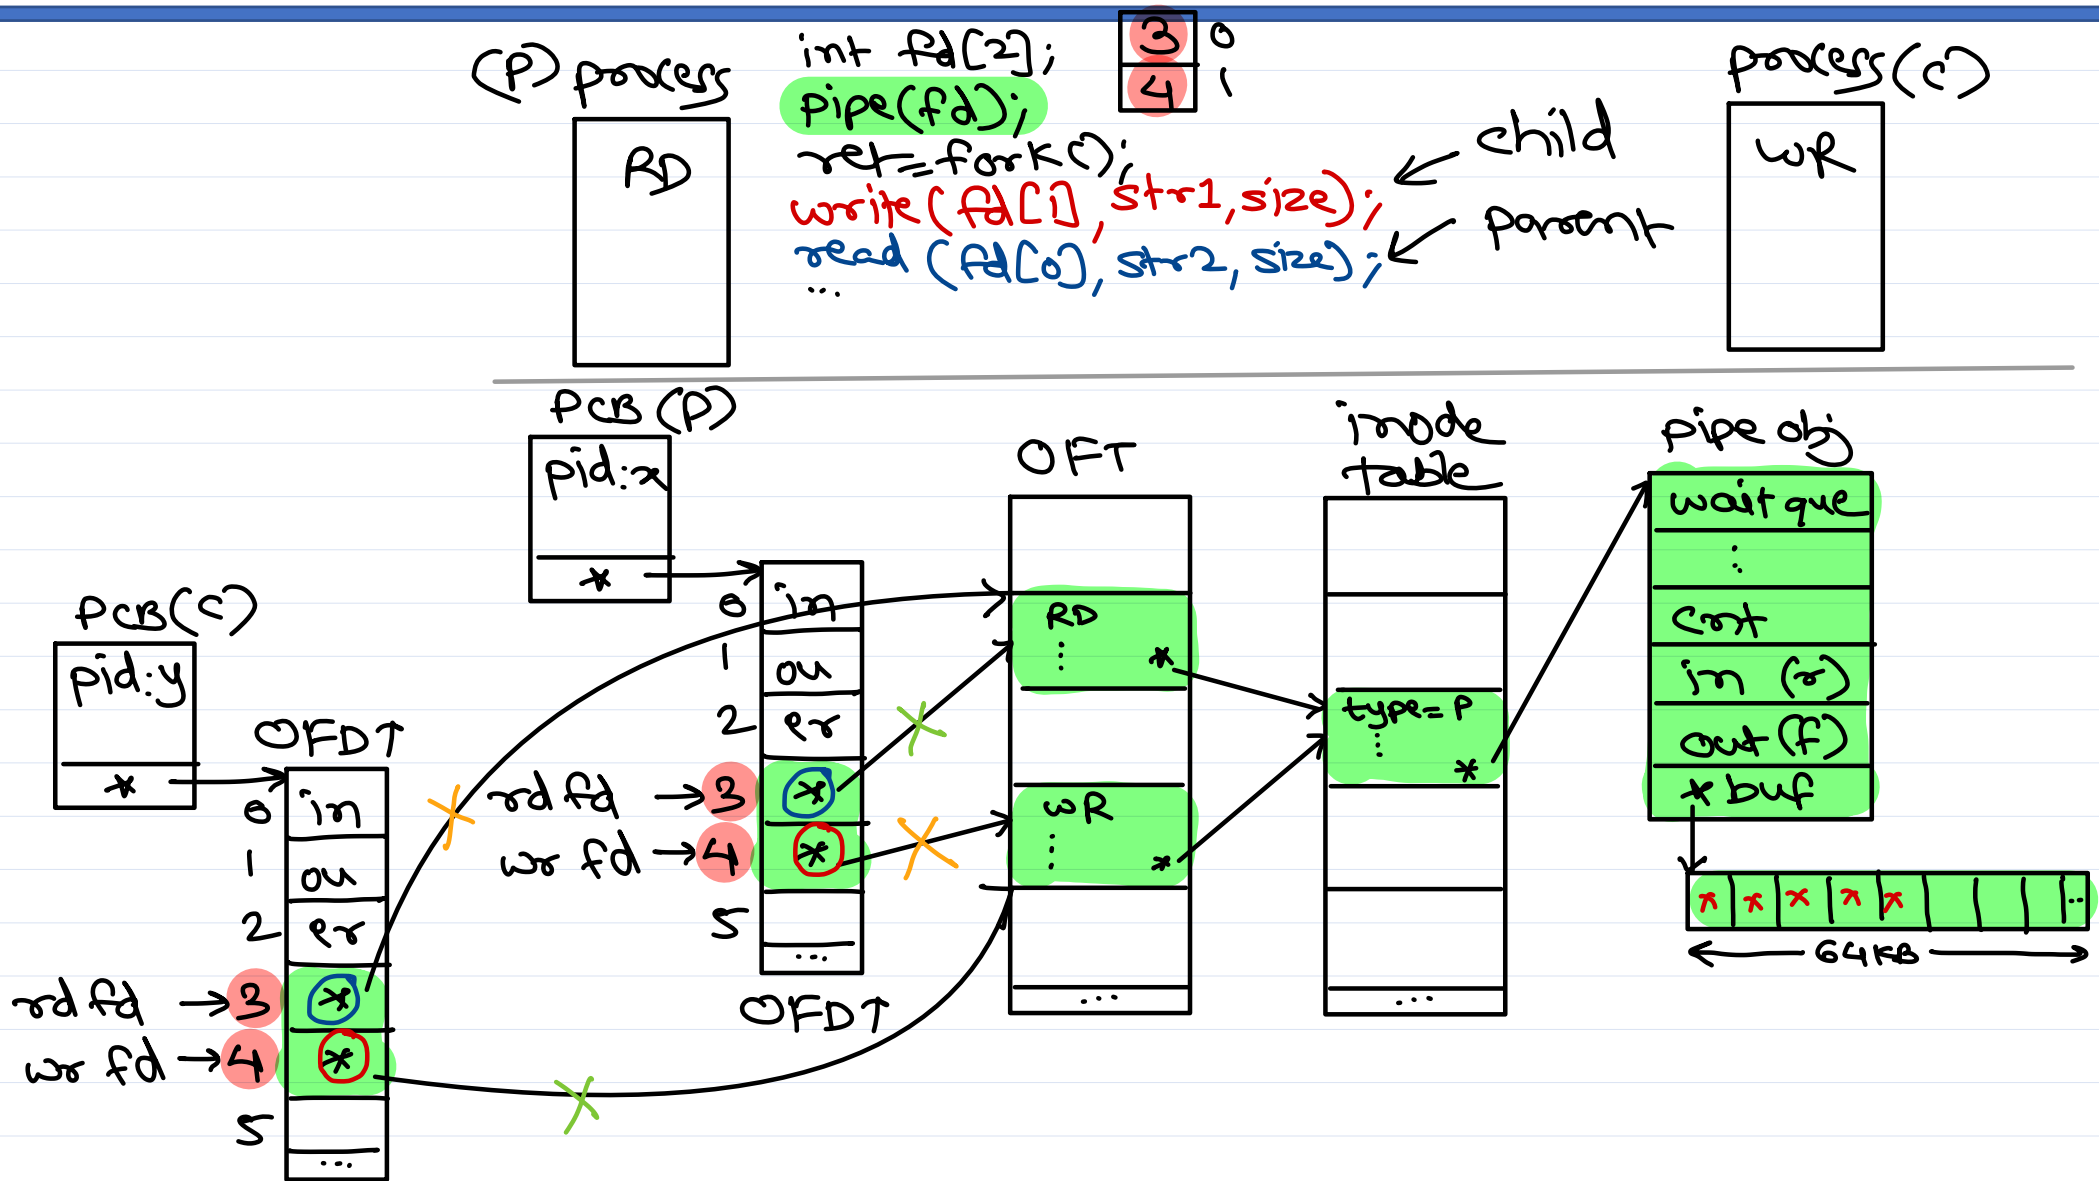 (P) process
int fd[2];
3 0
4 1
pipe(fd);
ret=fork();
write(fd[1], str1, size);
read (fd[0], str2, size);
...
child
parent
process(C)
RD
WR
PCB (P)
pid:x
*
PCB(C)
pid:y
*
OFDT
0 in
1 ou
2 er
rd fd → 3 *
wr fd → 4 *
5
...
0 in
1 ou
2 er
rd fd → 3 *
wr fd → 4 *
5
...
OFDT
OFT
RD
⋮ *
WR
⋮ *
...
inode
table
type=P
⋮ *
...
pipe obj
wait que
⋮
cnt
in (r)
out (f)
* buf
x x x x x ...
64KB